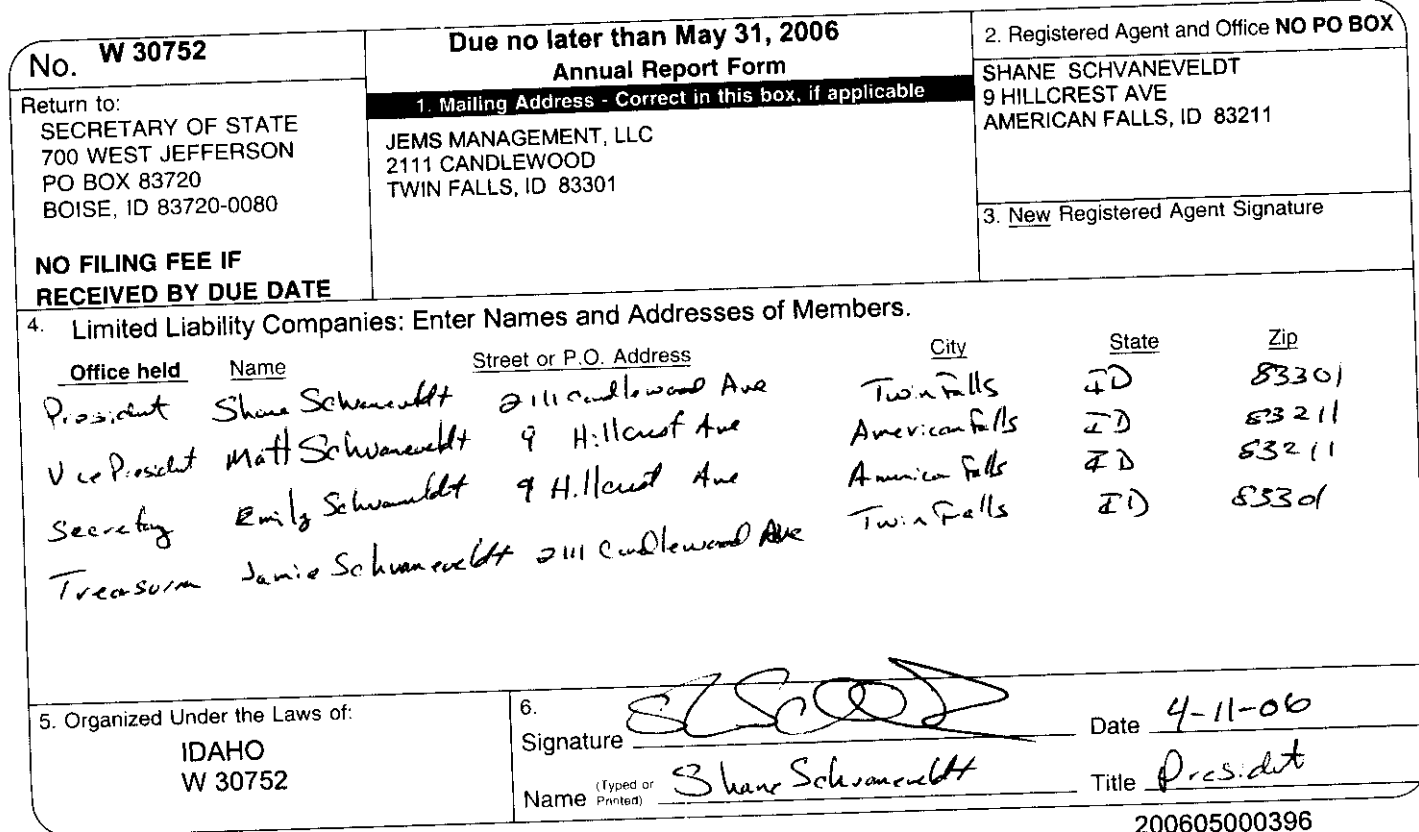 No. W 30752
Return to:
SECRETARY OF STATE
700 WEST JEFFERSON
PO BOX 83720
BOISE, ID 83720-0080
NO FILING FEE IF
RECEIVED BY DUE DATE
Due no later than May 31, 2006
Annual Report Form
1. Mailing Address - Correct in this box, if applicable
JEMS MANAGEMENT, LLC
2111 CANDLEWOOD
TWIN FALLS, ID 83301
2. Registered Agent and Office NO PO BOX
SHANE SCHVANEVELDT
9 HILLCREST AVE
AMERICAN FALLS, ID 83211
3. New Registered Agent Signature
4. Limited Liability Companies: Enter Names and Addresses of Members.
Office held Name Street or P.O. Address City State Zip
President Shane Schvaneveldt 2111 Candlewood Ave Twin Falls ID 83301
Vice President Matt Schvaneveldt 9 Hillcrest Ave American Falls ID 83211
Secretary Emily Schvaneveldt 9 Hillcrest Ave American Falls ID 83211
Treasurer Jamie Schvaneveldt 2111 Candlewood Ave Twin Falls ID 83301
5. Organized Under the Laws of:
IDAHO
W 30752
6.
Signature
Date 4-11-06
Name (Typed or Printed) Shane Schvaneveldt
Title President
200605000396